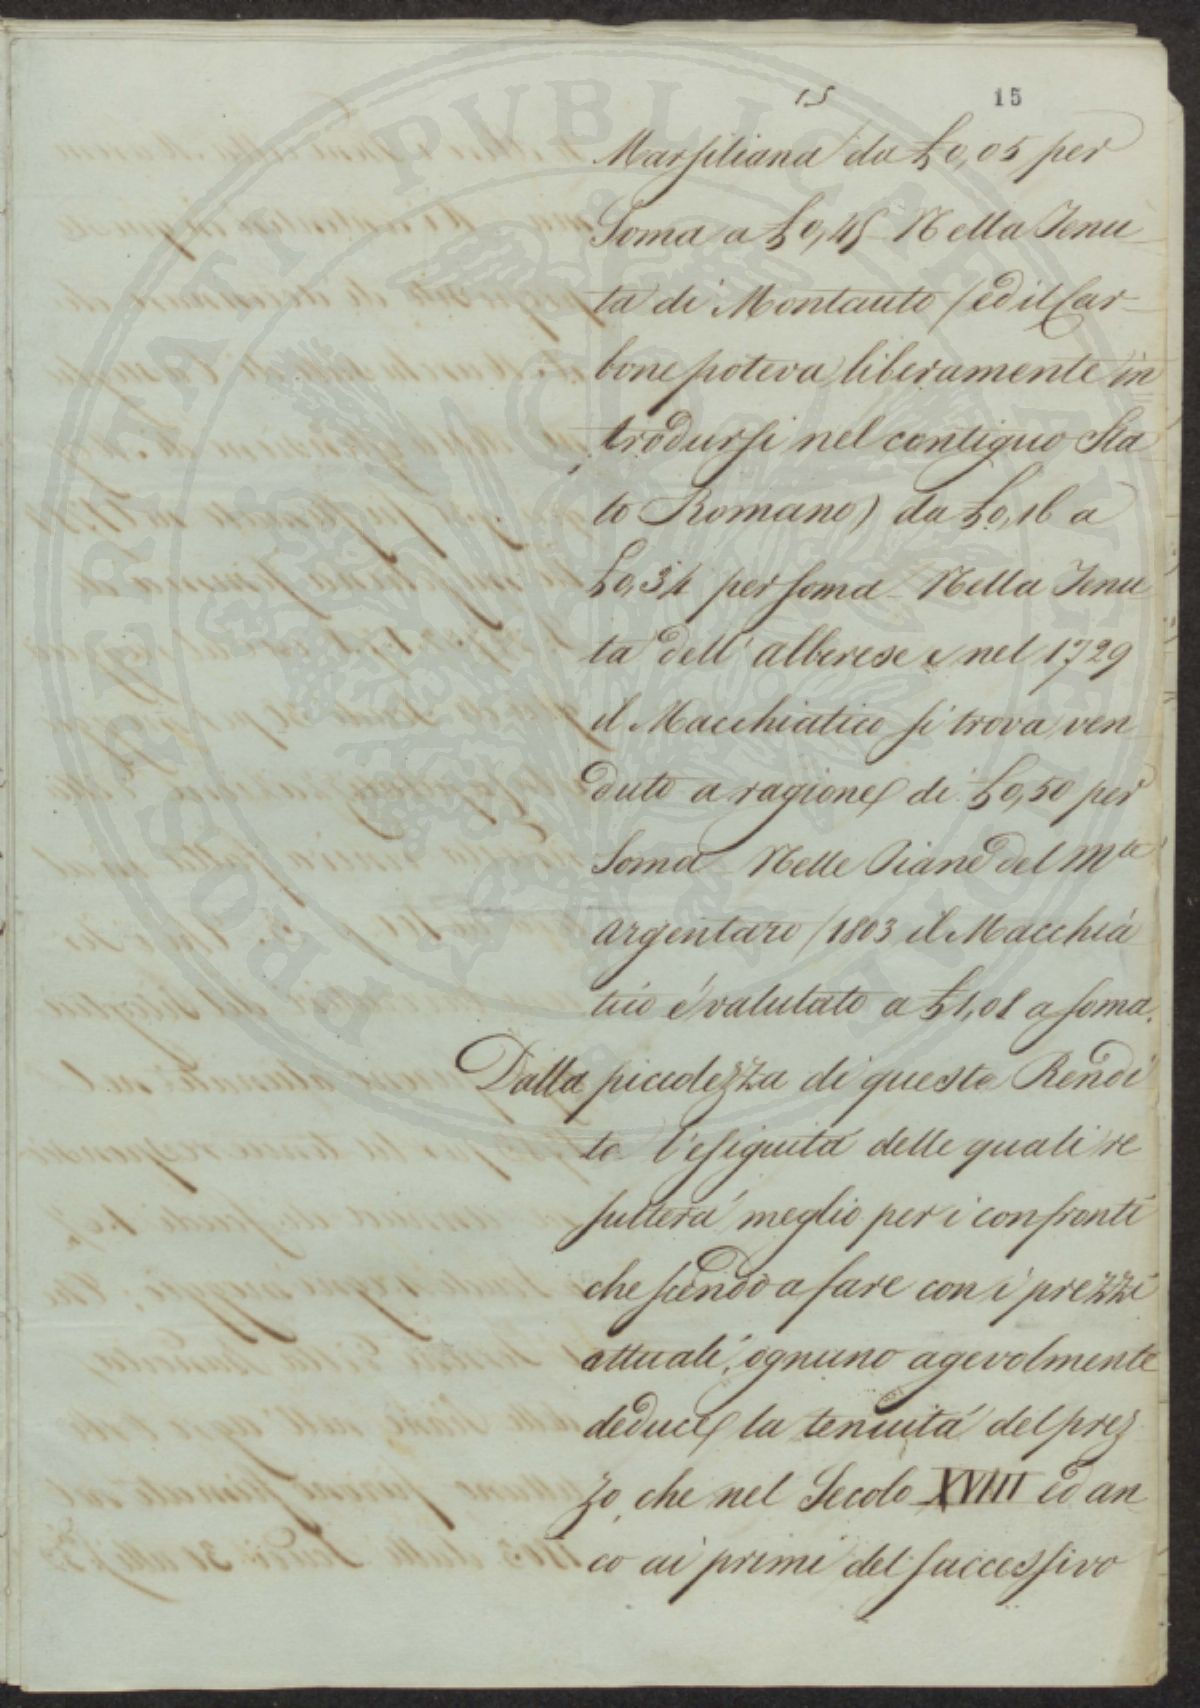 15 15
Marsiliana da £0,05 per
Soma a £0,45 Nella Tenu
ta di Montauto (ed il Car-
bone poteva liberamente in
trodursi nel contiguo Sta
to Romano) da £0,16 a
£0,34 per soma - Nella Tenu
ta dell' alberese e nel 1729
il Macchiatico si trova ven
duto a ragione di £0,50 per
Soma - Nelle Piane del Mte
Argentaro (1803 il Macchia
tico é valutato a £1,08 a soma.
Dalla piccolezza di questo Rendi
to l'esiguità delle quali re
sulterà meglio per i confronti
che scendo a fare con i prezzi
attuali, ognuno agevolmente
deduce la tenuità del prez
zo, che nel Secolo XVIII ed an
co ai primi del successivo
PROSPERITATI PVBLICAE